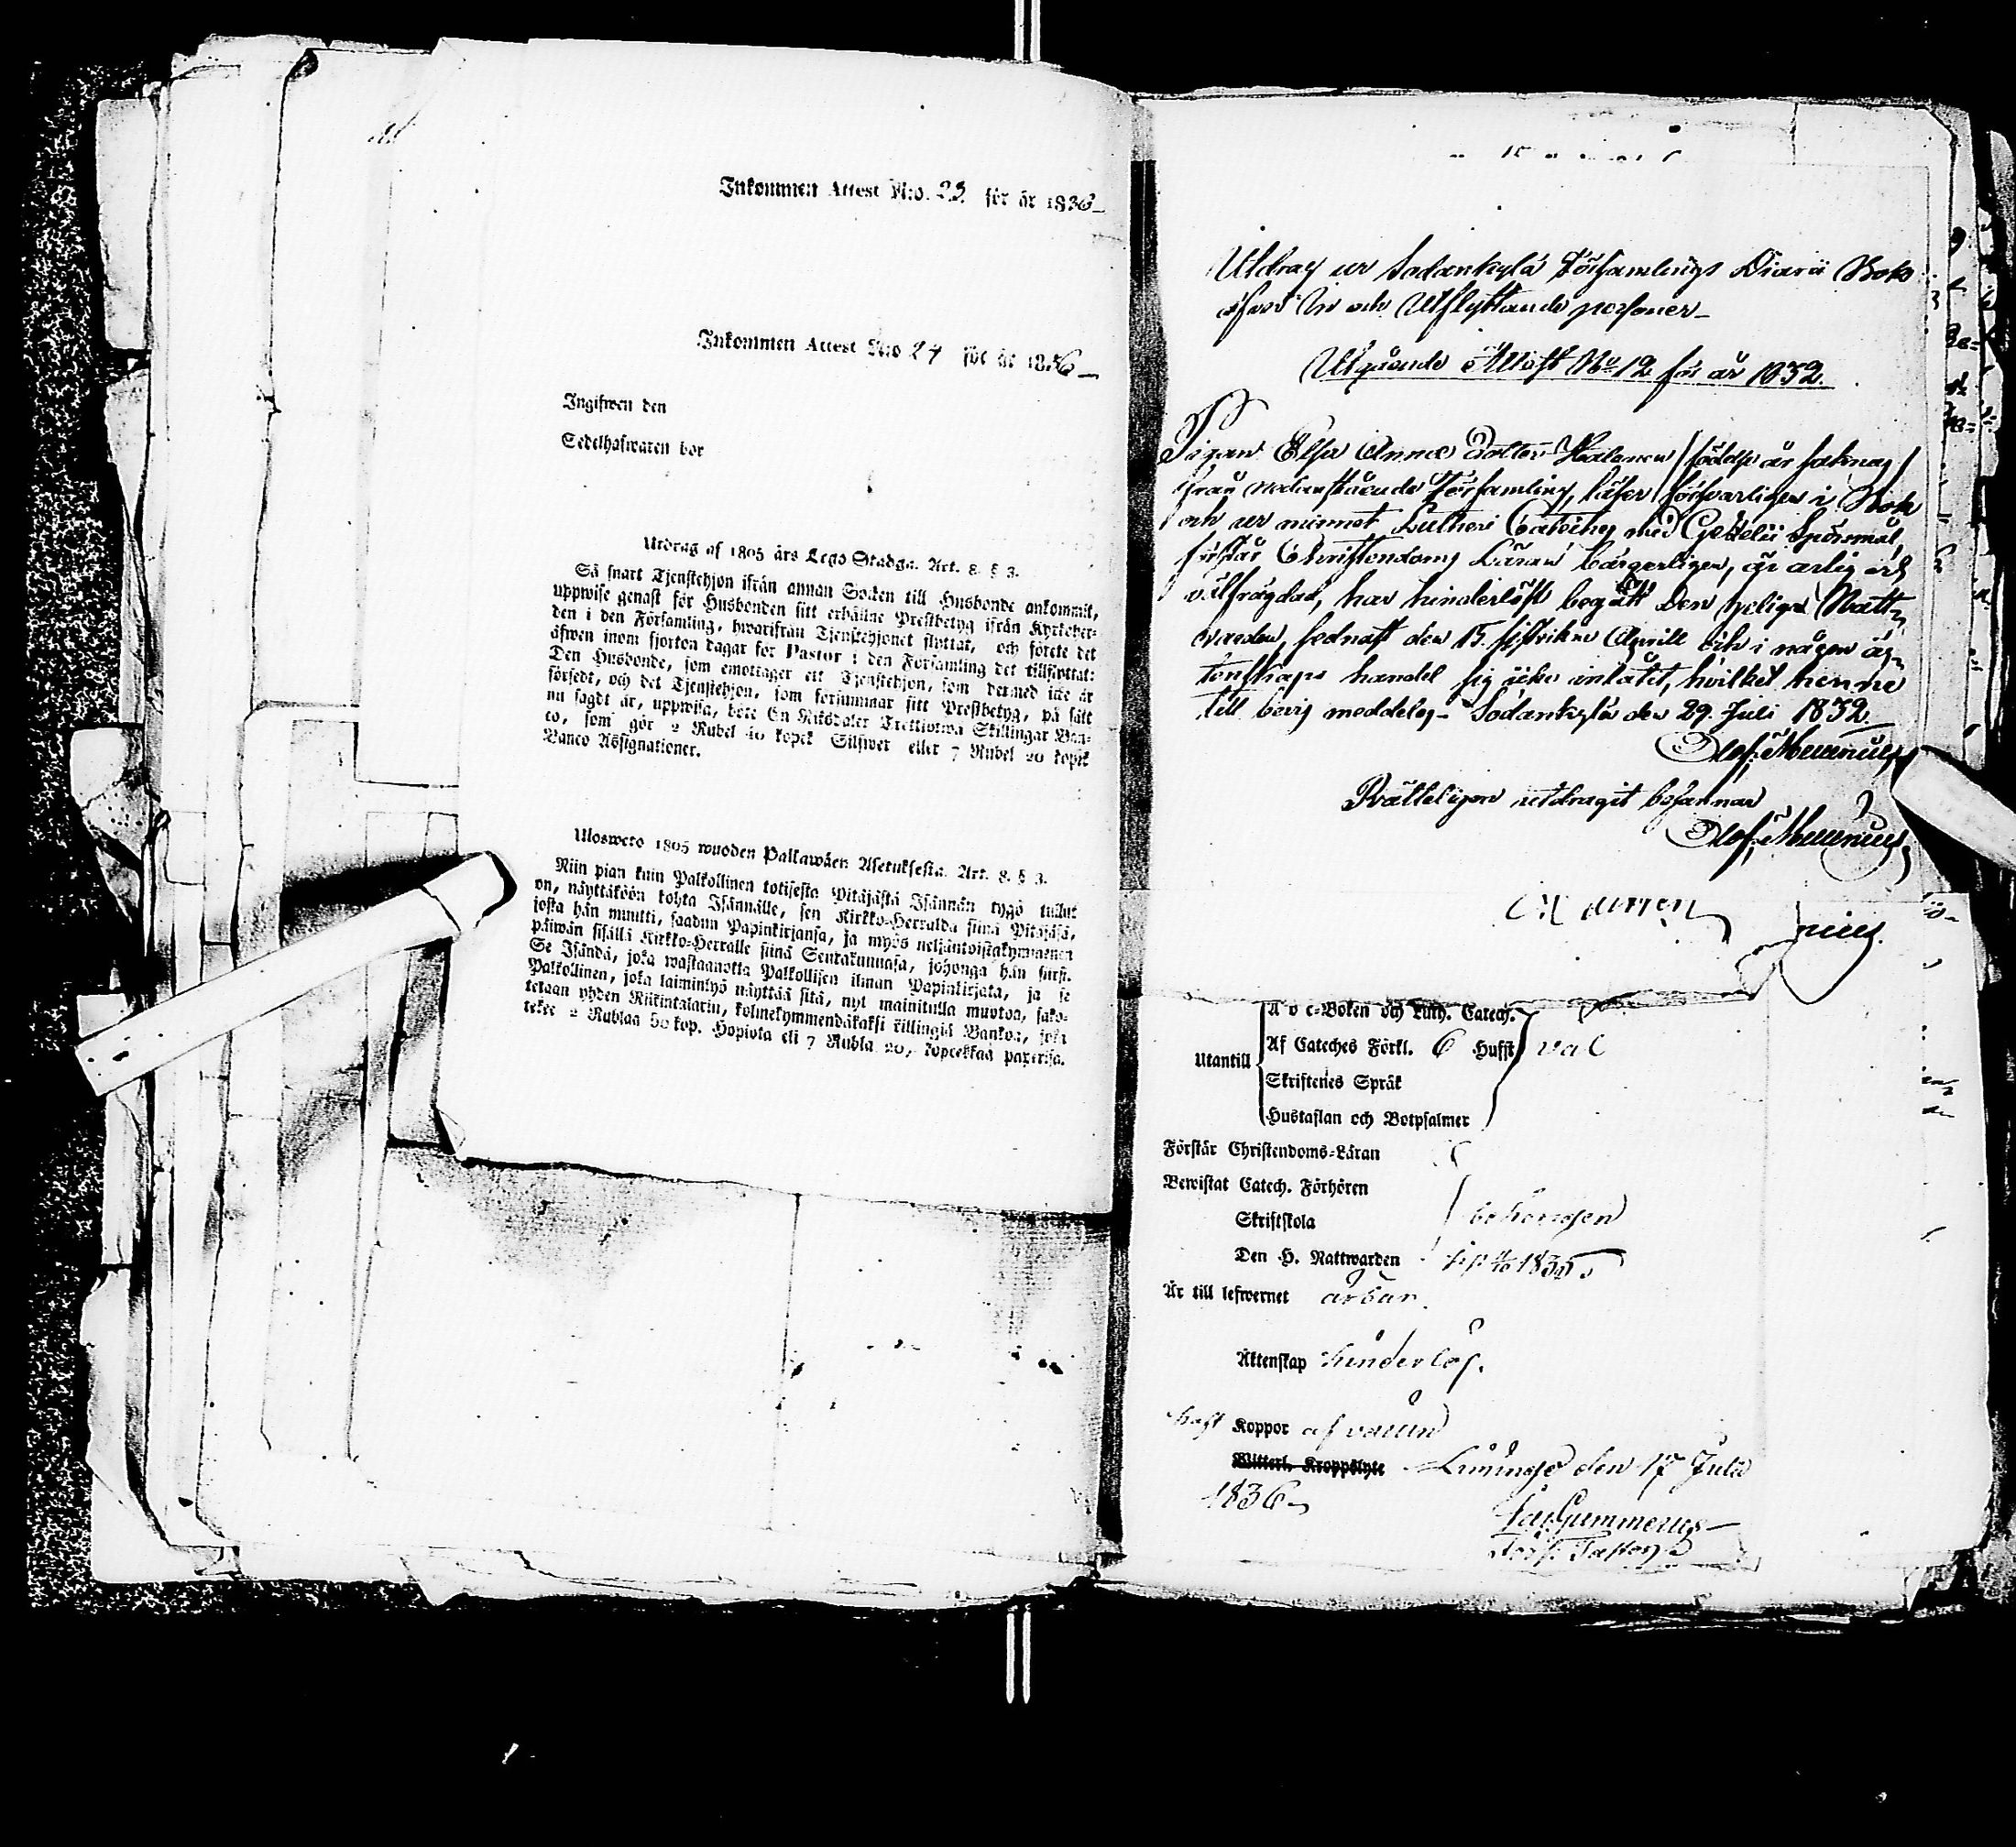 Inkommen Attest N:o. 23. för år 1836
Inkommen Attest N:o 24 för år 1836
Ingifwen den
Sedelhafwaren bor
Utdrag af 1805 års Lego Stadga. Art. 8. § 3.
Så snart Tjenstehjon ifrån annan Socken till Husbonde ankommit,
uppwise genast för Husbonden sitt erhållne Prestbetyg ifrån Kyrkoher-
den i den Församling, hwarifrån Tjenstehjonet flyttat, och förete det
äfwen inom fjorton dagar för Pastor i den Församling det tillflyttat:
Den Husbonde, som emottager ett Tjenstehjon, som dermed icke är
försedt, och det Tjenstehjon, som försummar sitt Prestbetyg, på sätt
nu sagdt är, uppwisa, böte En Riksdaler Trettiotwå Skillingar Ban-
co, som gör 2 Rubel 40 kopek Silfwer eller 7 Rubel 20 kopek
Banco Assignationer.
Ulosweto 1805 wuoden Palkawäen Asetuksesta. Art. 8. § 3.
Niin pian kuin Palkollinen toisesta Pitäjästä Isännän tygö tullut
on, näyttäköön kohta Isännälle, sen Kirkko-Herralda siinä Pitäjäsä,
josta hän muutti, saadun Papinkirjansa, ja myös neljäntoistakymmenen
päiwän sisällä Kirkko-Herralle siinä Seurakunnasa, johonga hän siirsi.
Se Isändä, joka wastaanotta Palkollisen ilman Papinkirjata, ja se
Palkollinen, joka laiminlyö näyttää sitä, nyt mainitulla muotoa, sako-
tetaan yhden Riikintalarin, kolmekymmendäkaksi killingiä Bankoa, joka
tekee 2 Rublaa 40 kop. Hopiota eli 7 Rubla 20, kopeekkaa paperisa.
Utdrag ur Sodankylä Församlings Diarii Bok
öfver In och Utflyttande personer
Utgående Attest No 12 för år 1832.
Pigan Elsa Anna Dotter / födelse år saknas /
ifrån nedanstående Församling, läser försvarligen i Bok
och ur minnet Lutheri Cateches med Gezelii Spörsmål,
förstår Christendoms Läran bärgerligen, är ärlig och
välfrägdad, har hinderlöst begått Den heliga Natt-
varden, sednast den 15. sistvikne Aprill och i någon äg-
tenskaps handel sig icke inlåtit, hvilket henne
till bevis meddelas. Sodankylä den 29. Juli 1832.
Olof
Rätteligen utdragit befinnes
Olof
Utantill
A b c-Boken och Luth. Catech.
Af Cateches Förkl. 6 Hufst val
Skriftenes Språk
Hustaflan och Botpsalmer
Förstår Christendoms-Läran
Bewistat Catech. Förhören
Skriftskola behörigen
Den H. Nattwarden 1835
Är till lefwernet ärbar.
Äktenskap hinderlös.
haft Koppor af vaccin
Witterl. Kroppslyte Limingo den 17 Julii
1836
Gummerus